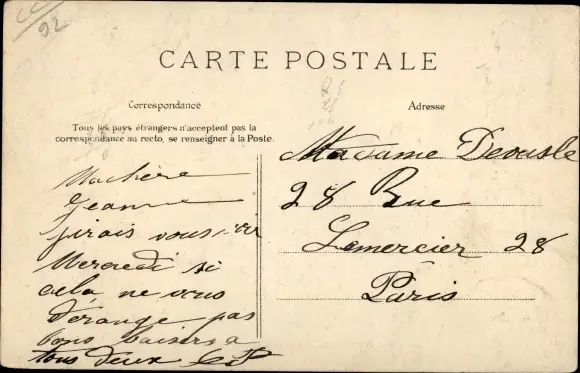 92
CARTE POSTALE
Correspondance
Adresse
Tous les pays étrangers n'acceptent pas la
correspondance au recto, se renseigner à la Poste.
Machère
Jeanne
j'irais vous voir
Mercredi si
cela ne vous
dérange pas
bons baisers a
tous deux
Madame
28 Rue
Lemercier 28
Paris